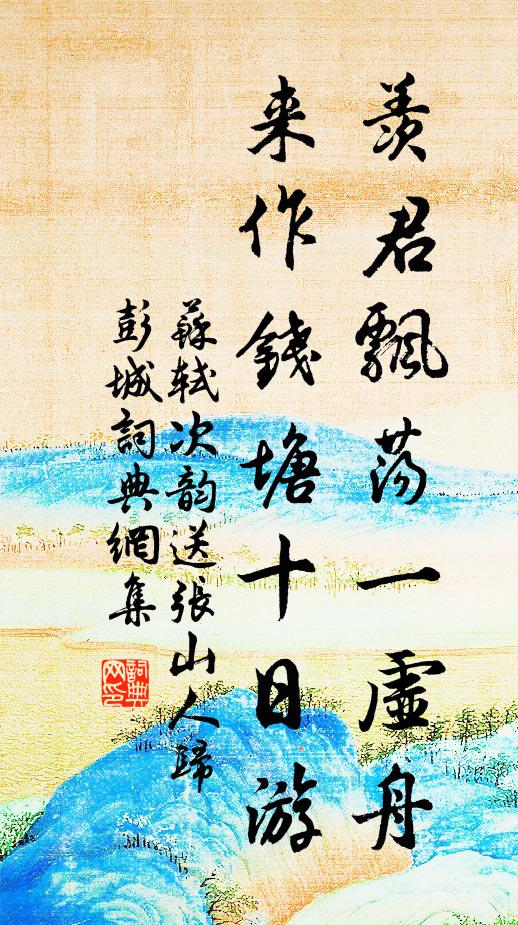 羨君飄蕩一虛舟
來作錢塘十日游
蘇軾次韵送張山人歸
彭城詞典網集
詞典网印